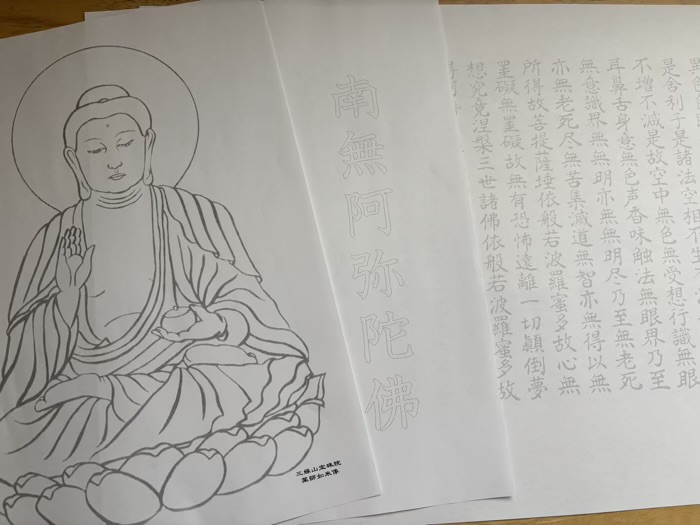 是舍利子是諸法空相不生
不増不減是故空中無色無受想行識無眼
耳鼻舌身意無色声香味触法無眼界乃至
無意識界無無明亦無無明尽乃至無老死
亦無老死尽無苦集滅道無智亦無得以無
所得故菩提薩埵依般若波羅蜜多故心無
罣礙無罣礙故無有恐怖遠離一切顛倒夢
想究竟涅槃三世諸佛依般若波羅蜜多故
南無阿弥陀佛
三縁山宝珠院
薬師如来像